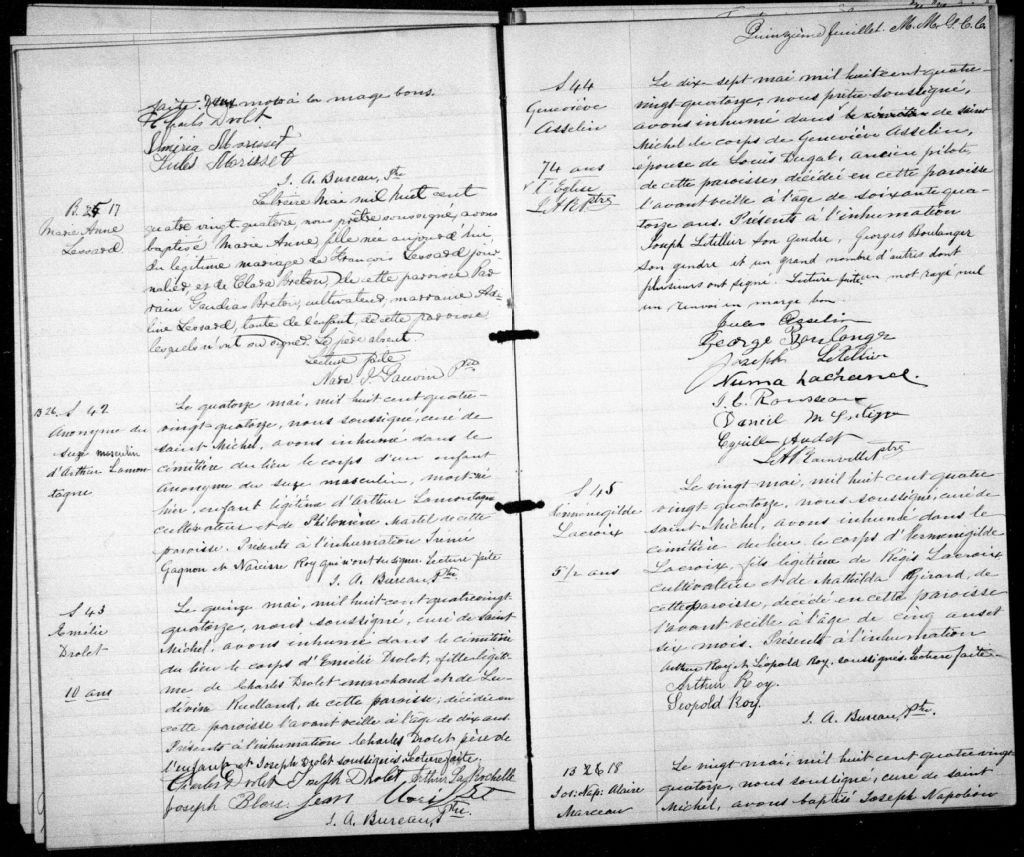 faite. mots à la marge bons.
Charles Drolet
Jules Morisset
J. A. Bureau, Ptre
B. 25 17
Marie Anne
Lessard
Le treize mai mil huit cent
quatre vingt quatorze, nous prêtre soussigné, avons
baptisé Marie Anne, fille née aujourd'hui,
du légitime mariage de François Lessard jour-
nalier et de Clara Breton, de cette paroisse Par-
rain Gaudias Breton, cultivateur, marraine
Lessard, tante de l'enfant, de cette paroisse
lesquels n'ont su signer. Le père absent
Lecture faite
J. Gauvin Ptre
B 26. S 42
Anonyme du
sexe masculin
d'Arthur Lamon
tagne
Le quatorze mai, mil huit cent quatre-
vingt-quatorze, nous soussigné, curé de
saint Michel, avons inhumé dans le
cimetière du lieu le corps d'un enfant
Anonyme du sexe masculin, mort-né
hier, enfant légitime d'Arthur Lamontagne
cultivateur et de Philomène Martel de cette
paroisse. Présents à l'inhumation
Gagnon et Narcisse Roy qui n'ont su signer. Lecture faite
J. A. Bureau, Ptre.
S 43
Emélie
Drolet
10 ans
Le quinze mai, mil huit cent quatrevingt
quatorze, nous soussigné, curé de Saint
Michel, avons inhumé dans le cimetière
du lieu le corps d'Emélie Drolet, fille légiti-
me de Charles Drolet marchand et de Lu-
divine Ruelland, de cette paroisse, décédée en
cette paroisse l'avant veille à l'âge de dix ans.
Présents à l'inhumation Charles Drolet, père de
l'enfant et Joseph Drolet soussignés Lecture faite.
Charles Drolet Joseph Drolet, Arthur La Rochelle
Joseph Blais. Jean
J. A. Bureau, Ptre.
Quinzième feuillet. M. M. G. C. C.
S 44
Geneviève
Asselin
74 ans
l'Eglise
Le dix-sept mai mil huit cent quatre-
vingt-quatorze, nous prêtre soussigné,
avons inhumé dans de saint
Michel le corps de Geneviève Asselin,
épouse de Louis Dugal, ancien pilote
de cette paroisse, décédée en cette paroisse
l'avant veille à l'âge de soixante qua-
torze ans. Présents à l'inhumation
Joseph Letellier son gendre, Georges Boulanger
son gendre et un grand nombre d'autres dont
plusieurs ont signé. Lecture faite. un mot rayé nul
un renvoi en marge bon.
Jules Asselin
George Boulanger
Joseph Letellier
Numa Lachance.
J. E. Rousseau
Cyrille Audet
Ptre
S 45
Hermenegilde
Lacroix
5 1/2 ans
Le vingt mai, mil huit cent quatre
vingt quatorze, nous soussigné, curé de
saint Michel, avons inhumé dans le
cimetière du lieu le corps d'Hermenegilde
Lacroix, fils légitime de Régis Lacroix
cultivateur et de Mathilda Girard, de
cette paroisse, décédé en cette paroisse
l'avant veille à l'âge de cinq ans et
six mois. Présents à l'inhumation
Arthur Roy et Léopold Roy. soussignés. Lecture faite.
Arthur Roy.
Leopold Roy.
J. A. Bureau, Ptre.
B 26 18
Jos: Nap: Alaire
Marceau
Le vingt mai, mil huit cent quatre vingt
quatorze, nous soussigné, curé de saint
Michel, avons baptisé Joseph Napoléon